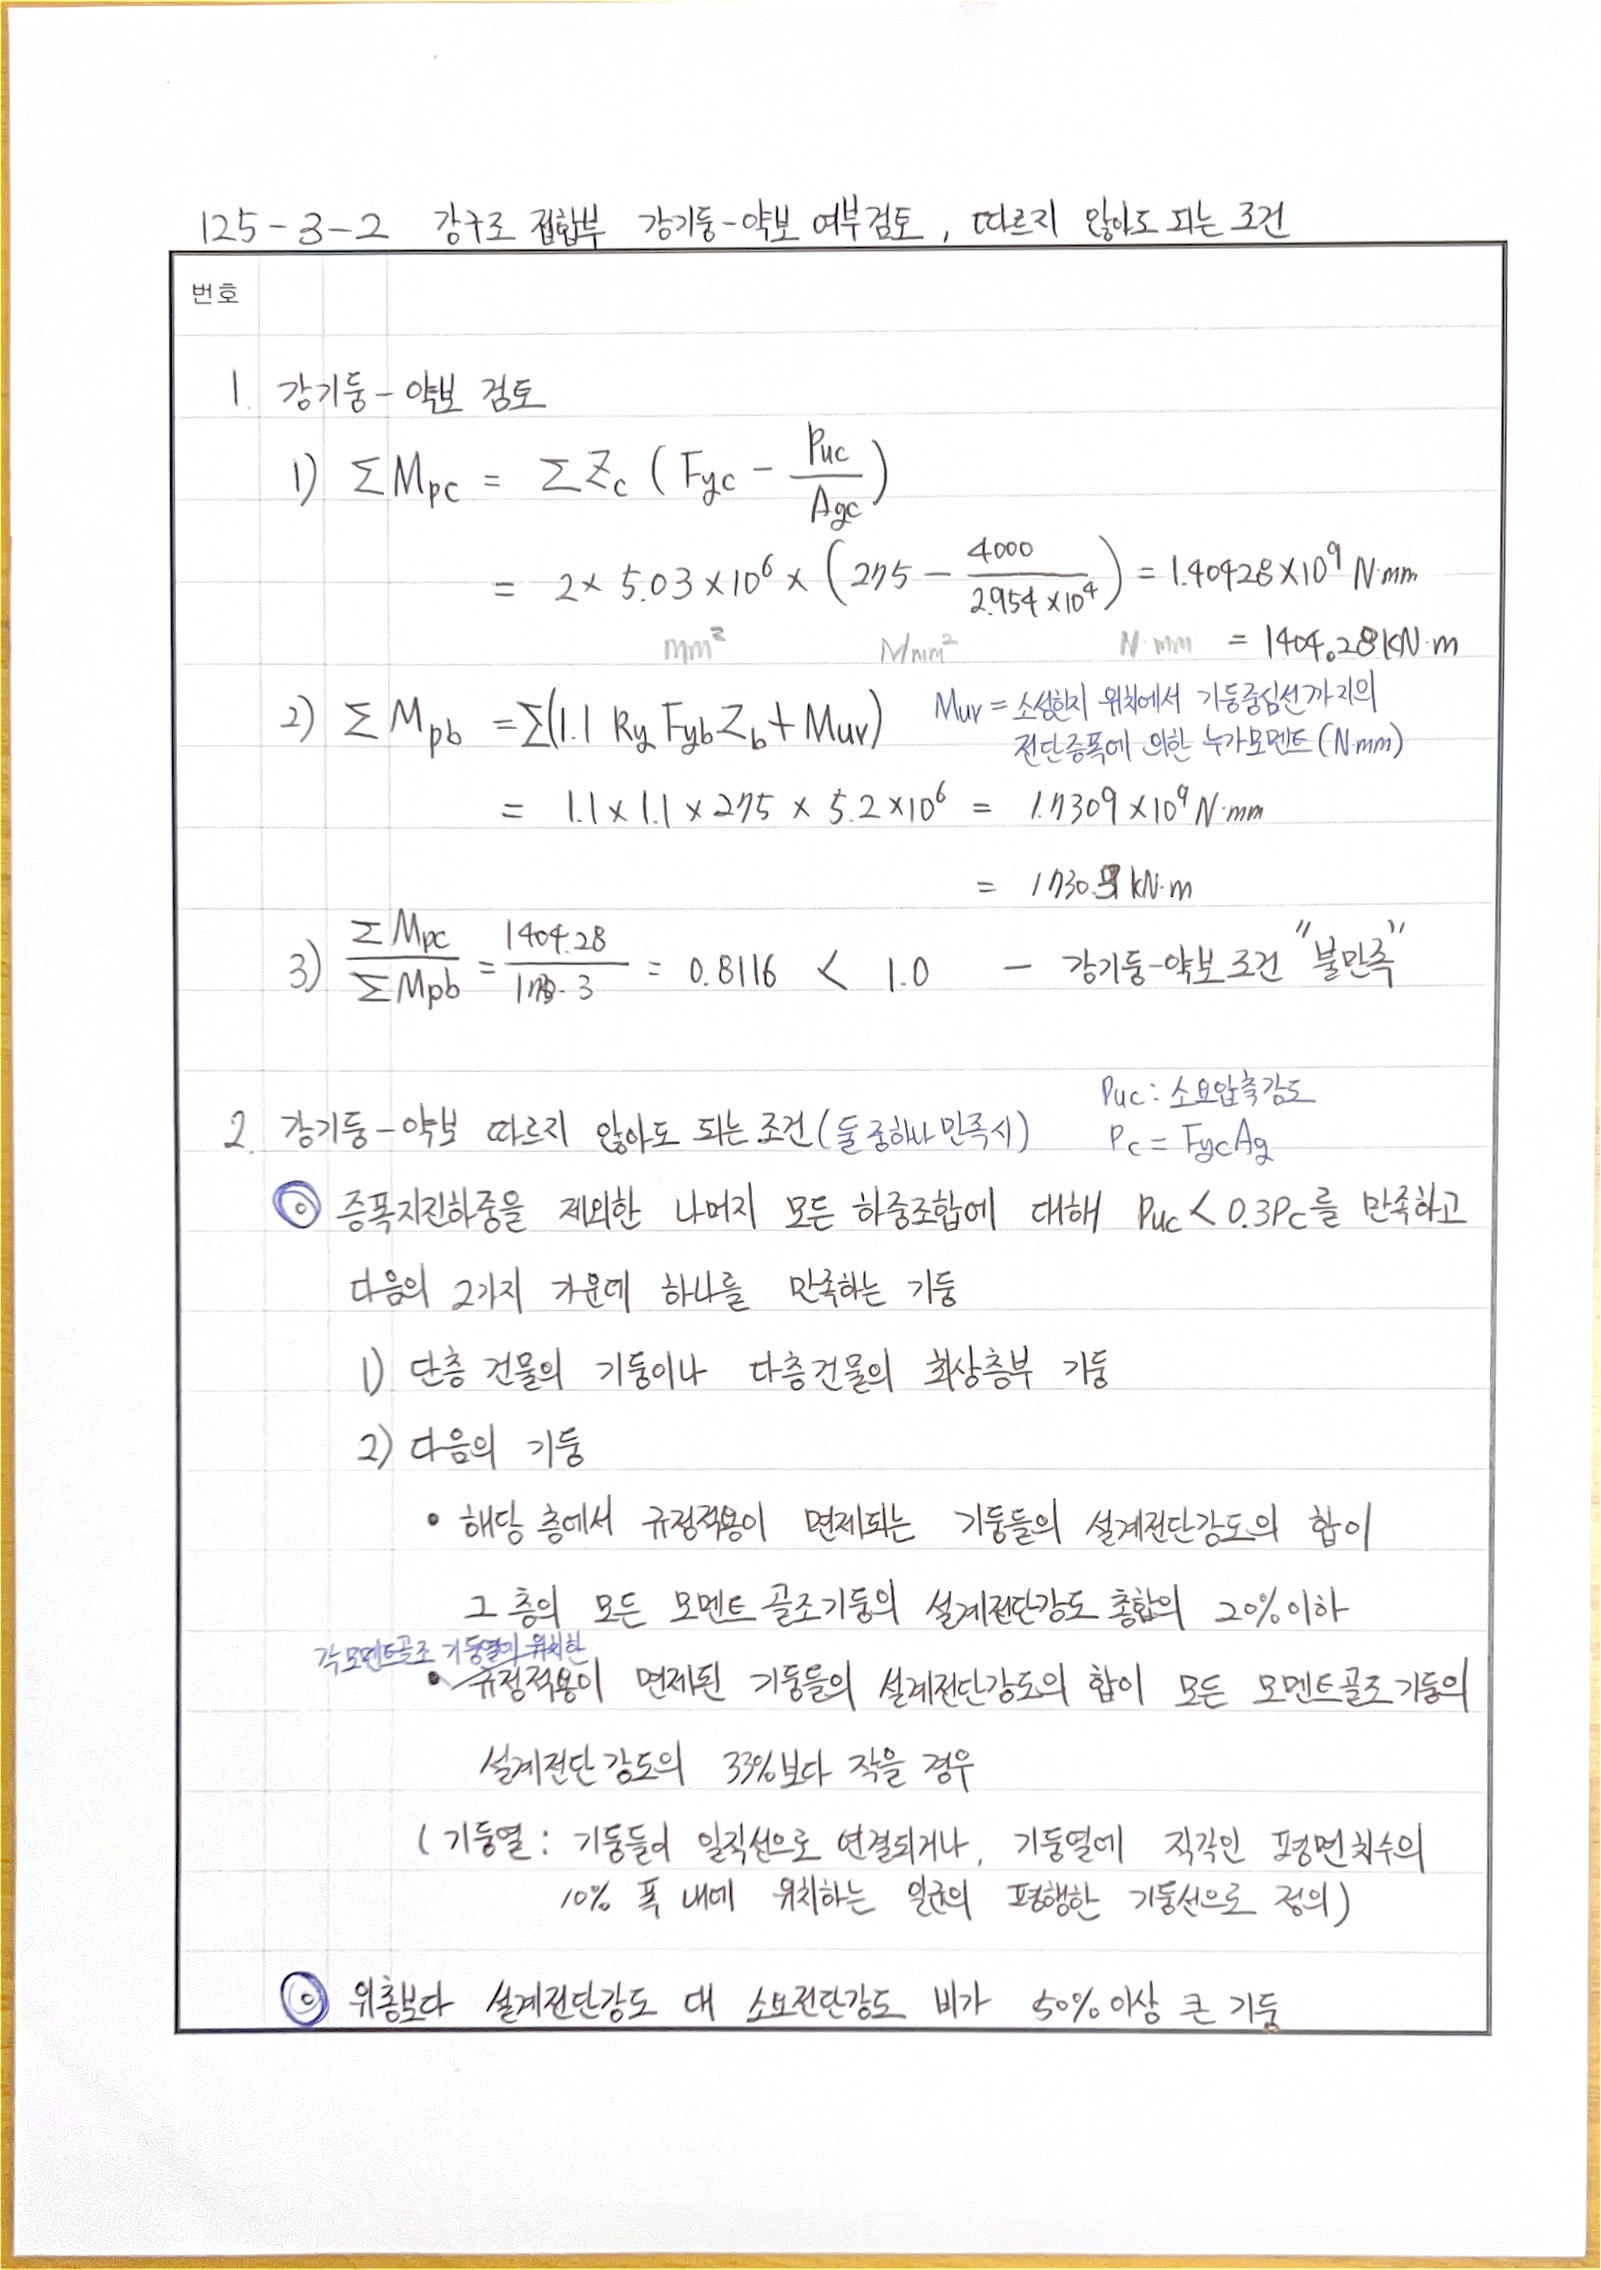 125-3-2 강구조 접합부 강기둥-약보 여부검토, 따르지 않아도 되는 조건
번호
1. 강기둥-약보 검토
1) ΣMpc = ΣZc (Fyc - Puc/Agc)
= 2 × 5.03 × 10⁶ × (275 - 4000/2.954×10⁴) = 1.40428×10⁹ N·mm
mm² N/mm² N·mm = 1404.28 kN·m
2) ΣMpb = Σ(1.1 Ry Fyb Zb + Muv) Muv = 소성힌지 위치에서 기둥중심선까지의
전단증폭에 의한 누가모멘트(N·mm)
= 1.1 × 1.1 × 275 × 5.2×10⁶ = 1.7309 ×10⁹ N·mm
= 1730.9 kN·m
3) ΣMpc/ΣMpb = 1404.28/ = 0.8116 < 1.0 - 강기둥-약보 조건 "불만족"
Puc : 소요압축강도
2. 강기둥-약보 따르지 않아도 되는 조건 (둘 중 하나 만족시) Pc = FycAg
◎ 증폭지진하중을 제외한 나머지 모든 하중조합에 대해 Puc < 0.3Pc를 만족하고
다음의 2가지 가운데 하나를 만족하는 기둥
1) 단층 건물의 기둥이나 다층건물의 최상층부 기둥
2) 다음의 기둥
• 해당 층에서 규정적용이 면제되는 기둥들의 설계전단강도의 합이
그 층의 모든 모멘트 골조기둥의 설계전단강도 총합의 20% 이하
각 모멘트골조 기둥열에 위치한
• 규정적용이 면제된 기둥들의 설계전단강도의 합이 모든 모멘트골조 기둥의
설계전단강도의 33%보다 작을 경우
(기둥열 : 기둥들이 일직선으로 연결되거나, 기둥열에 직각인 평면치수의
10% 폭 내에 위치하는 일군의 평행한 기둥선으로 정의)
◎ 위층보다 설계전단강도 대 소요전단강도 비가 50% 이상 큰 기둥